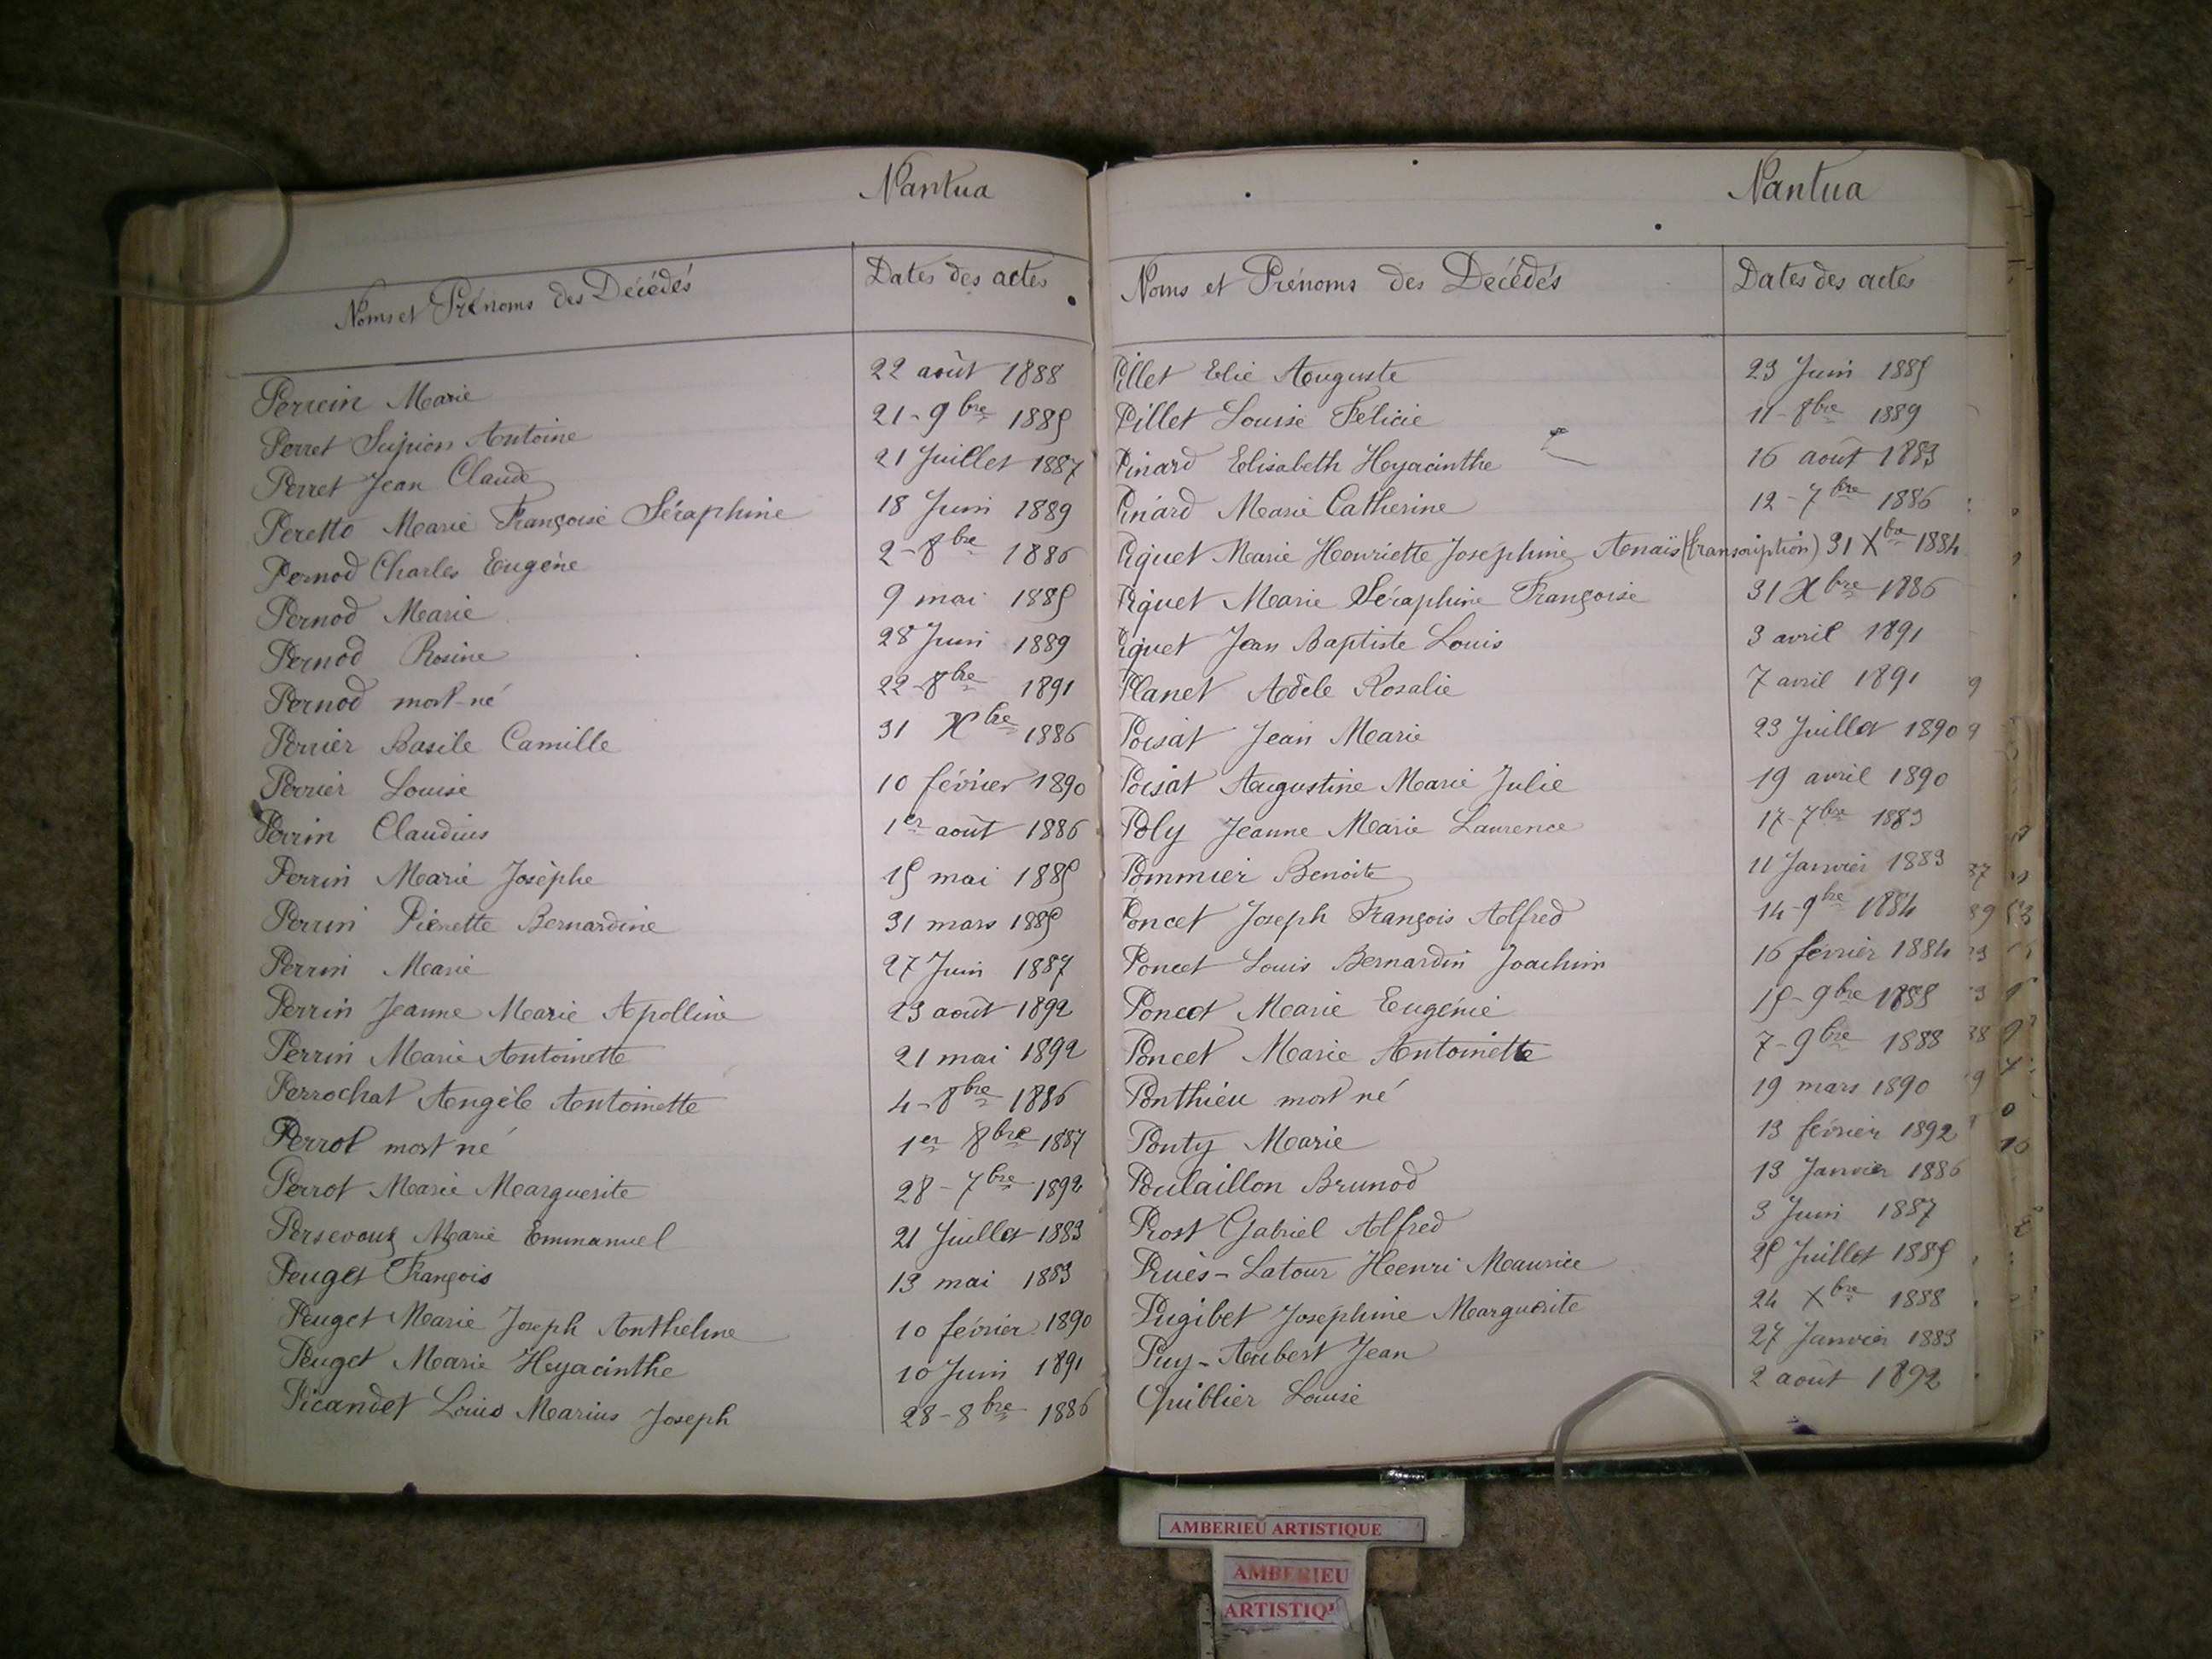 Nantua
Noms et Prénoms des Décédés Dates des actes
Perrein Marie 22 août 1888
Perret Antoine 21-9bre 1885
Perret Jean Claude 21 Juillet 1887
Peretto Marie Françoise Séraphine 18 Juin 1889
Pernod Charles Eugène 2-8bre 1886
Pernod Marie 9 mai 1885
Pernod Rosine 28 Juin 1889
Pernod mort-né 22-8bre 1891
Perrier Basile Camille 31 Xbre 1886
Perrier Louise 10 février 1890
Perrin Claudius 1er août 1886
Perrin Marie Josèphe 15 mai 1885
Perrin Pierrette Bernardine 31 mars 1885
Perrin Marie 27 Juin 1887
Perrin Jeanne Marie Apolline 23 août 1892
Perrin Marie Antoinette 21 mai 1892
Perrochat Angèle Antoinette 4-8bre 1886
Perrot mort né 1er 8bre 1887
Perrot Marie Marguerite 28-7bre 1892
Persevouz Marie Emmanuel 21 Juillet 1883
Peuget François 13 mai 1883
Peuget Marie Joseph Anthelme 10 février 1890
Peuget Marie Hyacinthe 10 Juin 1891
Picandet Louis Marius Joseph 28-8bre 1886
Nantua
Noms et Prénoms des Décédés Dates des actes
Pillet Elie Auguste 23 Juin 1885
Pillet Louise Félicie 11-8bre 1889
Pinard Elisabeth Hyacinthe 16 août 1883
Pinard Marie Catherine 12-7bre 1886
Piquet Marie Henriette Joséphine Anaïs (transcription) 31 Xbre 1884
Piquet Marie Séraphine Françoise 31 Xbre 1886
Piquet Jean Baptiste Louis 3 avril 1891
Planet Adèle Rosalie 7 avril 1891
Poisat Jean Marie 23 Juillet 1890
Poisat Augustine Marie Julie 19 avril 1890
Poly Jeanne Marie Laurence 17-7bre 1883
Pommier Benoite 11 Janvier 1883
Poncet Joseph François Alfred 14-9bre 1884
Poncet Louis Bernardin Joachim 16 février 1884
Poncet Marie Eugénie 15-9bre 1885
Poncet Marie Antoinette 7-9bre 1888
Ponthieu mort né 19 mars 1890
Ponty Marie 13 février 1892
Poulaillon Brunod 13 Janvier 1886
Prost Gabriel Alfred 3 Juin 1887
Pruès-Latour Henri Maurice 25 Juillet 1885
Pugibet Joséphine Marguerite 24 Xbre 1888
Puy-Aubert Jean 27 Janvier 1883
Quiblier Louise 2 août 1892
AMBERIEU ARTISTIQUE
AMBERIEU
ARTISTIQU